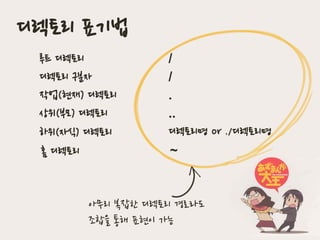 디렉토리 표기법
루트 디렉토리 /
디렉토리 구분자 /
작업(현재) 디렉토리 .
상위(부모) 디렉토리 ..
하위(자식) 디렉토리 디렉토리명 or ./디렉토리명
홈 디렉토리 ~
아무리 복잡한 디렉토리 경로라도
조합을 통해 표현이 가능
あずまんが
大王